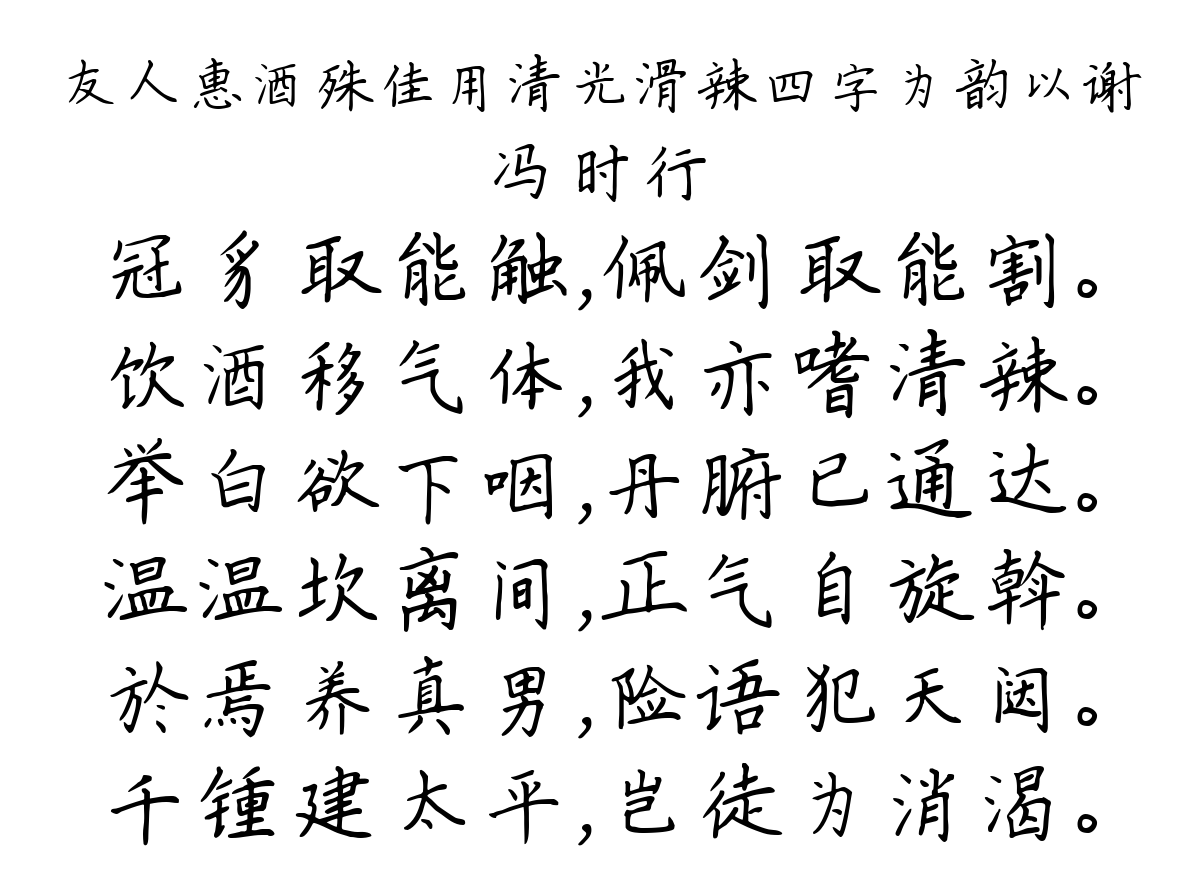 友人惠酒殊佳用清光滑辣四字为韵以谢
冯时行
冠豸取能触,佩剑取能割。
饮酒移气体,我亦嗜清辣。
举白欲下咽,丹腑已通达。
温温坎离间,正气自旋斡。
於焉养真男,险语犯天闼。
千锺建太平,岂徒为消渴。